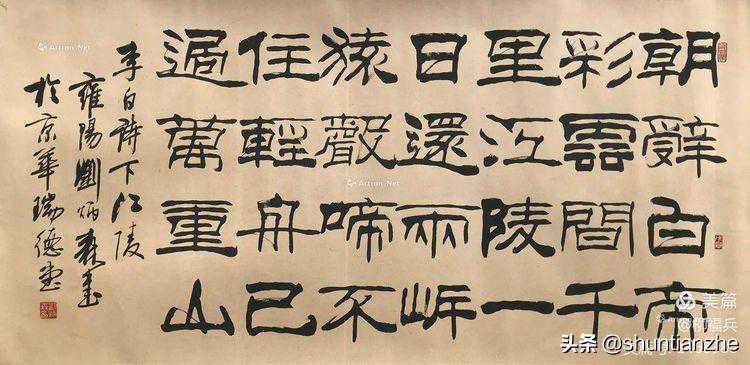 朝辭白帝
彩雲間千
里江陵一
日還兩岸
猿聲啼不
住輕舟已
過萬重山
李白詩下江陵
雍陽劉炳森書
於京華瑞德堂
Artron.Net
Artron.Net
Artron.Net
美篇
头条 @shuntianzhe